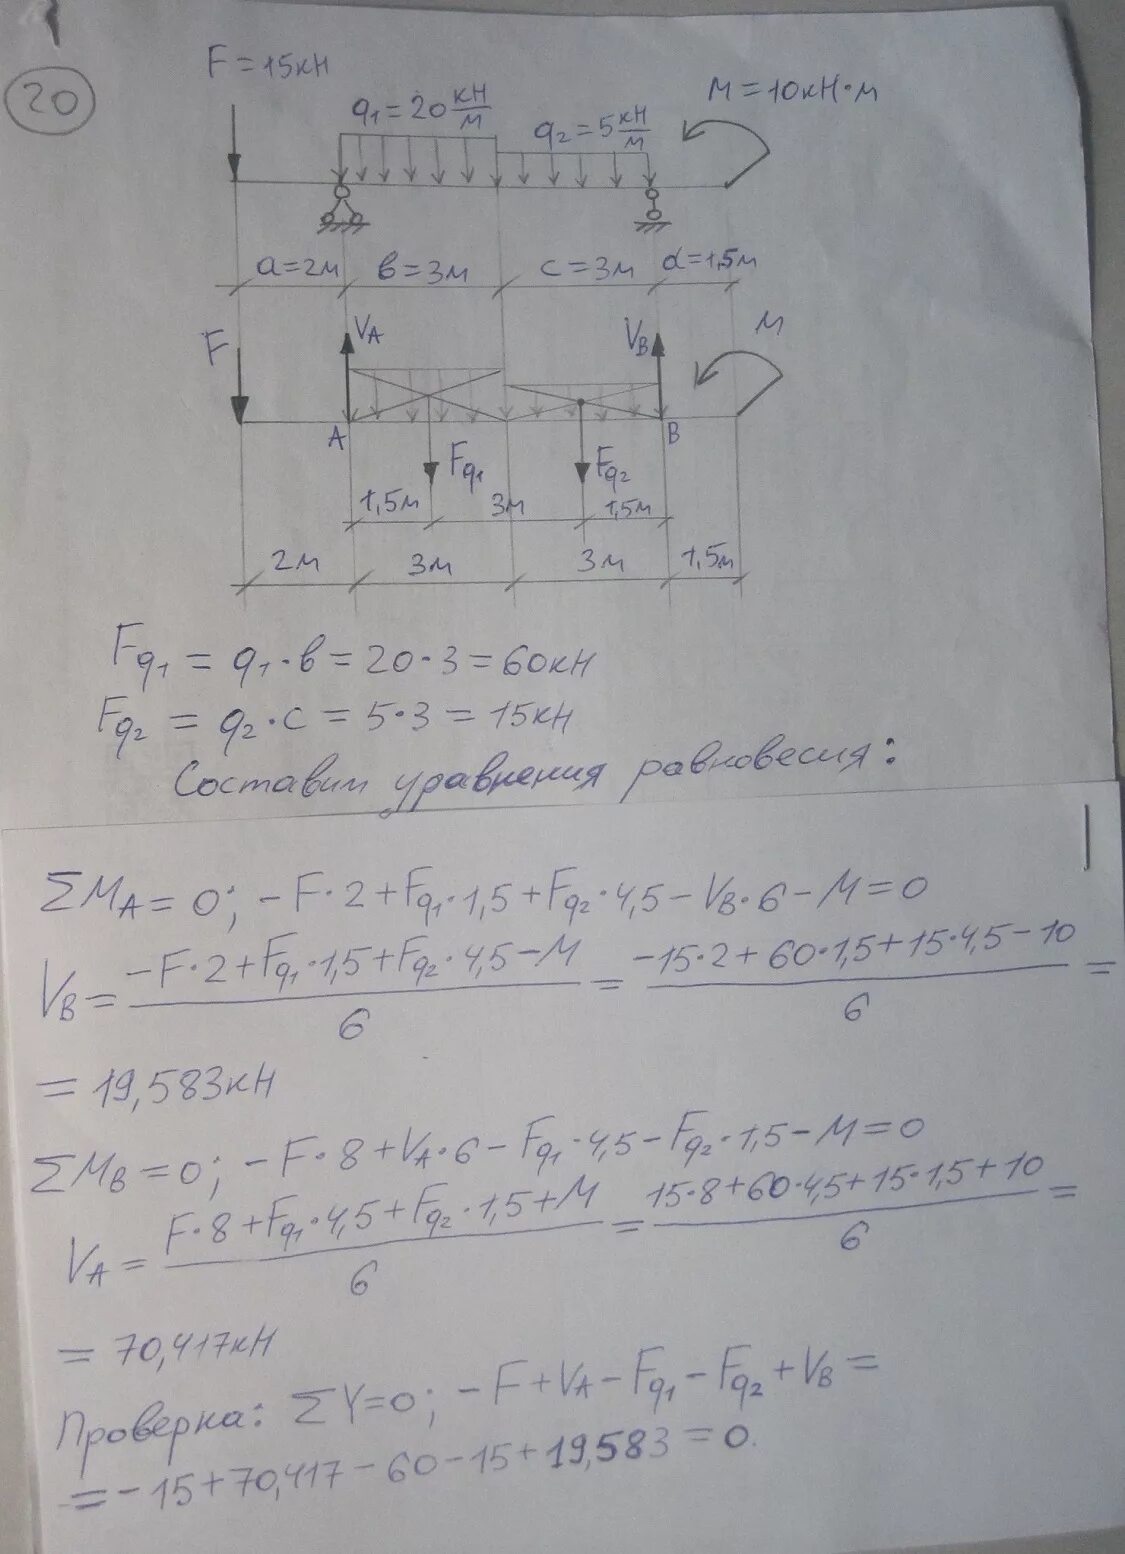 20
F = 15кН
q₁ = 20 кН/м
q₂ = 5 кН/м
M = 10кН·м
a = 2м
в = 3м
c = 3м
d = 1,5м
F
V_A
V_B
M
A
B
F_q₁
F_q₂
1,5м
3м
1,5м
2м
3м
3м
1,5м
F_q₁ = q₁·в = 20·3 = 60кН
F_q₂ = q₂·c = 5·3 = 15кН
Составим уравнения равновесия:
ΣM_A = 0; -F·2 + F_q₁·1,5 + F_q₂·4,5 - V_B·6 - M = 0
V_B = (-F·2 + F_q₁·1,5 + F_q₂·4,5 - M)/6 = (-15·2 + 60·1,5 + 15·4,5 - 10)/6 =
= 19,583кН
ΣM_B = 0; -F·8 + V_A·6 - F_q₁·4,5 - F_q₂·1,5 - M = 0
V_A = (F·8 + F_q₁·4,5 + F_q₂·1,5 + M)/6 = (15·8 + 60·4,5 + 15·1,5 + 10)/6 =
= 70,417кН
Проверка: ΣY = 0; -F + V_A - F_q₁ - F_q₂ + V_B =
= -15 + 70,417 - 60 - 15 + 19,583 = 0.